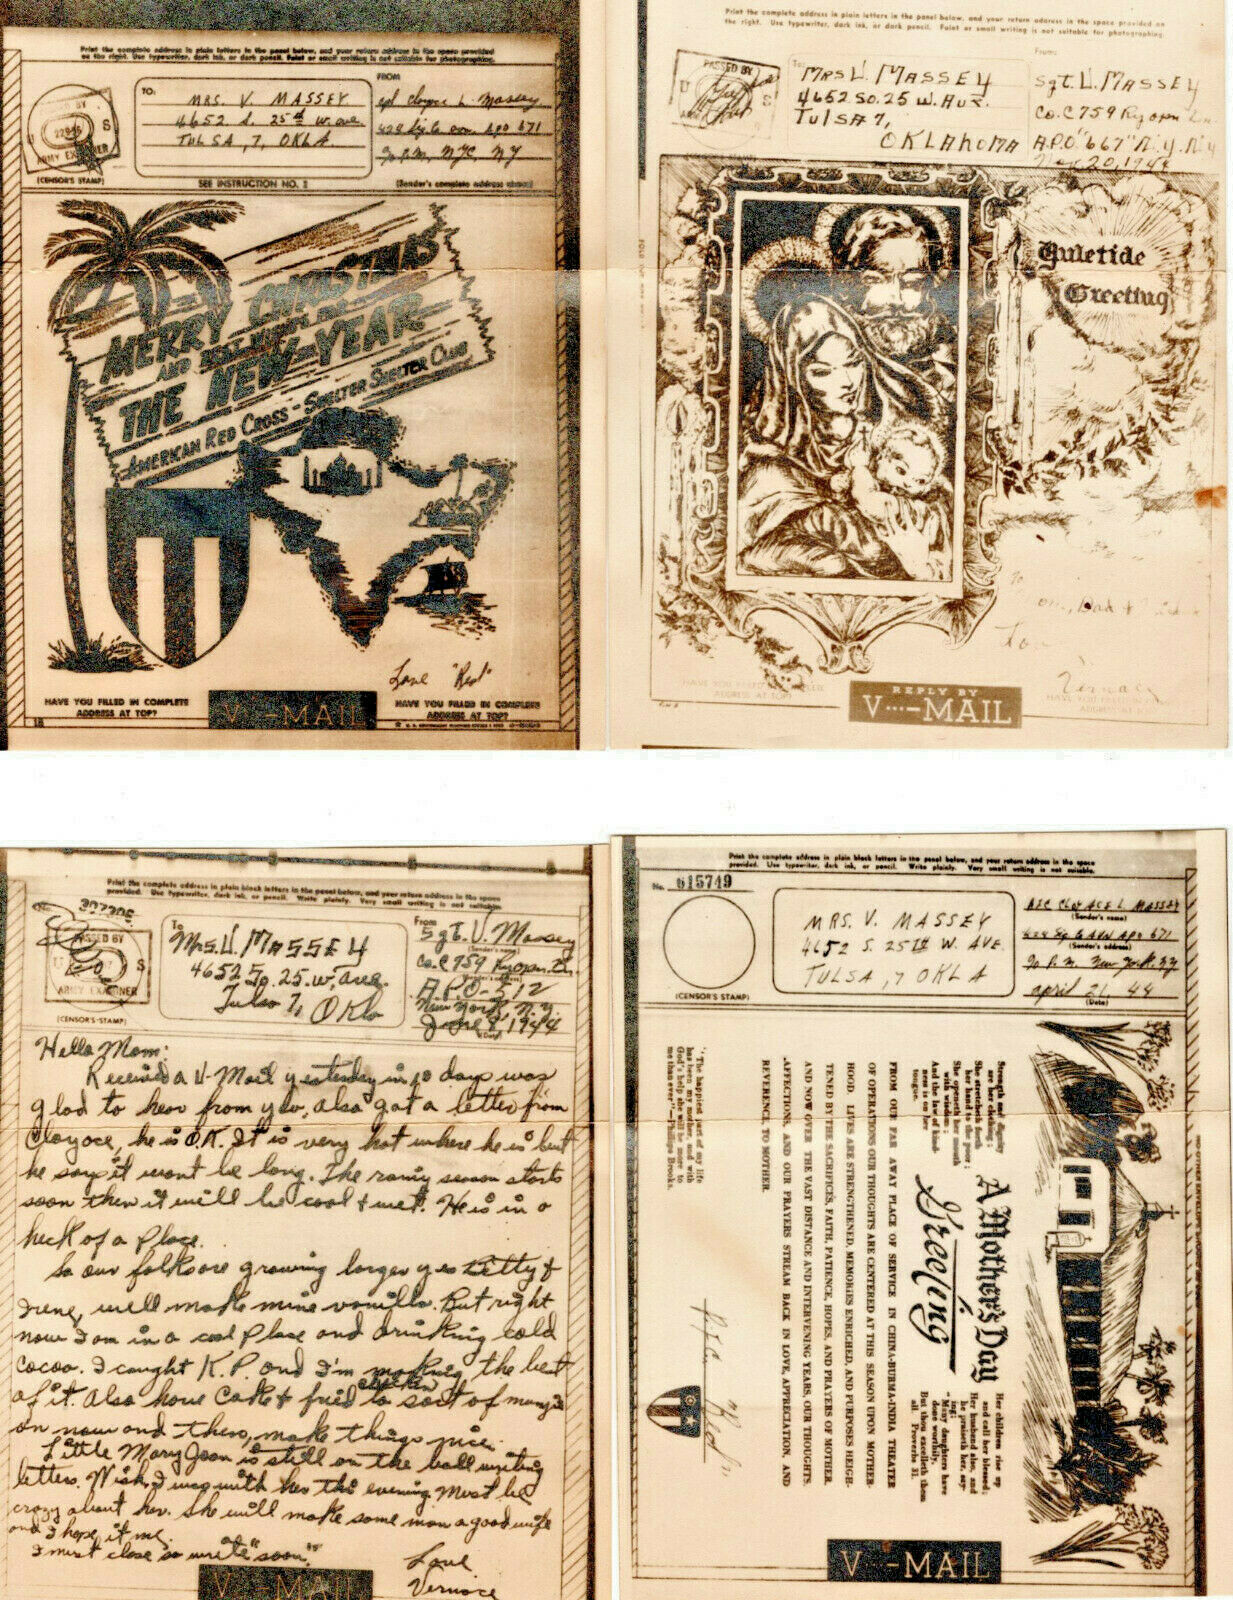 Print the complete address in plain letters in the panel below, and your return address in the space provided
on the right. Use typewriter, dark ink, or dark pencil. Faint or small writing is not suitable for photographing.
TO:
MRS. V. MASSEY
4652 S. 25th W. AVE
TULSA, 7, OKLA
FROM
Cpl Cloyace L. Massey
APO 671
% P.M., NYC, NY
U S
22916
ARMY EXAMINER
(CENSOR'S STAMP)
SEE INSTRUCTION NO. 2
(Sender's complete address above)
MERRY CHRISTMAS
AND
THE NEW YEAR
AMERICAN RED CROSS - SHELTER SKELTER CLUB
Love "Red"
HAVE YOU FILLED IN COMPLETE
ADDRESS AT TOP?
V···—MAIL
HAVE YOU FILLED IN COMPLETE
ADDRESS AT TOP?
Print the complete address in plain letters in the panel below, and your return address in the space provided on
the right. Use typewriter, dark ink, or dark pencil. Faint or small writing is not suitable for photographing.
PASSED BY
U
ARMY
To:
MRS V. MASSEY
4652 SO. 25 W. AVE.
TULSA 7,
OKLAHOMA
From:
SGT. V. MASSEY
CO. C 759 Ry opn
A.P.O. "667" N.Y. N.Y
Nov. 20, 1944
Yuletide
Greeting
To
Dad &
REPLY BY
V···—MAIL
Print the complete address in plain block letters in the panel below, and your return address in the space
provided. Use typewriter, dark ink, or pencil. Write plainly. Very small writing is not suitable.
No. 307306
PASSED BY
U S
ARMY EXAMINER
(CENSOR'S STAMP)
To
Mrs. V. MASSEY
4652 So. 25. W. Ave.
Tulsa 7, Okla
From
Sgt. V. Massey
(Sender's name)
Co. C 759 Ry opn Bn.
A.P.O-512
New York, N.Y.
June 8, 1944
(Date)
Hello Mom:
Received a V-Mail yesterday in 10 days was
glad to hear from you, also got a letter from
Cloyace, he is O.K. It is very hot where he is but
he says it wont be long. The rainy season starts
soon then it will be cool & wet. He is in a
heck of a place.
So our folks are growing larger yes Betty &
Irene, well make mine vanilla. But right
now I am in a cool place and drinking cold
cocoa. I caught K.P. and I'm making the best
of it. Also have cake & fried chicken to sort of mung
on now and then, make things nice.
Little Mary Joan is still on the ball writing
letters. Wish I was with her this evening. Must be
crazy about her. She will make some man a good wife
and I hope it me.
I must close so write "soon"
Love
Vernace
V···—MAIL
Print the complete address in plain block letters in the panel below, and your return address in the space
provided. Use typewriter, dark ink, or pencil. Write plainly. Very small writing is not suitable.
No. 615749
(CENSOR'S STAMP)
MRS. V. MASSEY
4652 S. 25TH W. AVE.
TULSA, 7 OKLA
CLOYACE L. MASSEY
(Sender's name)
APO 671
(Sender's address)
% P.M. New York, NY
april 21 44
(Date)
Strength and dignity
are her clothing;
She stretcheth forth
her hand to the poor;
She openeth her mouth
with wisdom;
And the law of kind-
ness is on her
tongue.
A Mother's Day
Greeting
Her children rise up
and call her blessed;
Her husband also, and
he praiseth her, say-
ing:
"Many daughters have
done worthily,
But thou excellest them
all. Proverbs 31.
FROM OUR FAR AWAY PLACE OF SERVICE IN CHINA-BURMA-INDIA THEATER
OF OPERATIONS OUR THOUGHTS ARE CENTERED AT THIS SEASON UPON MOTHER-
HOOD. LIVES ARE STRENGTHENED, MEMORIES ENRICHED, AND PURPOSES HEIGH-
TENED BY THE SACRIFICES, FAITH, PATIENCE, HOPES, AND PRAYERS OF MOTHER.
AND NOW OVER THE VAST DISTANCE AND INTERVENING YEARS, OUR THOUGHTS,
AFFECTIONS, AND OUR PRAYERS STREAM BACK IN LOVE, APPRECIATION, AND
REVERENCE, TO MOTHER.
"The happiest part of my life
has been my mother, and with
God's help she will be more to
me than ever"—Phillips Brooks.
P.F.C. "Red"
V···—MAIL